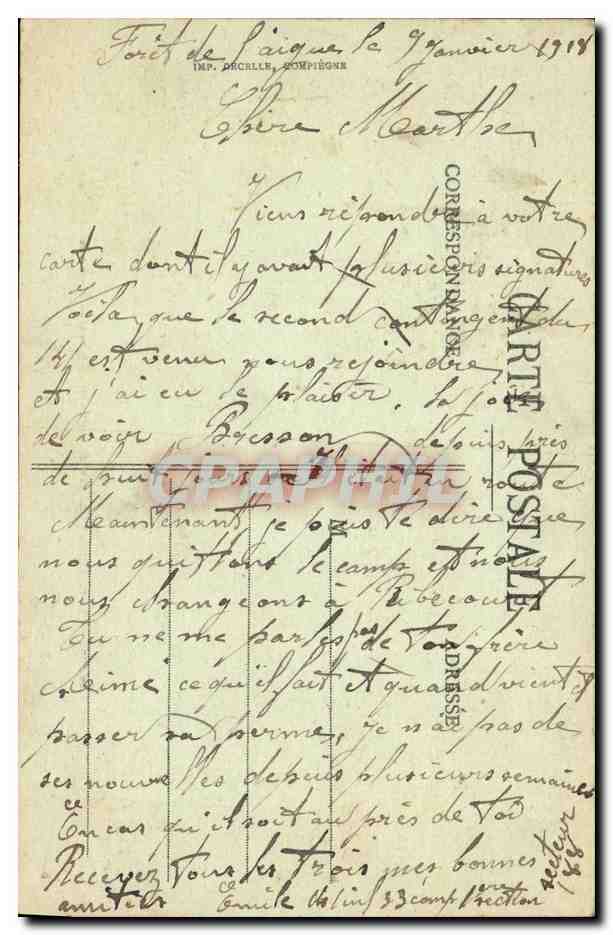 Forêt de l'aigue le 9 Janvier 1918
IMP. DECELLE, COMPIÈGNE
Chère Marthe
Viens répondre à votre
carte dont il y avait plusieurs signatures
Voila que le second contingent du
141 est venu nous rejoindre
et j'ai eu le plaisir, la joie
de voir Bresson depuis près
de huit jours était en route
Maintenant je puis te dire que
nous quittons le camp et nous
nous changeons à Ribecourt
Tu ne me parles pas de ton frère
ce qu'il fait et quand vient il
passer sa perme, je n'ai pas de
ses nouvelles depuis plusieurs semaines
En cas qu'il soit au près de toi
Recevez tous les trois mes bonnes
amitiés Emile 141 inf 33 comp 1ere section
secteur 188
CARTE POSTALE
CORRESPONDANCE
ADRESSE
CPAPHIL